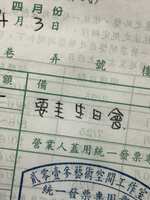 四月份
4月3日
巷 弄 號
額 備
要走出目會
營業人蓋用統一發票專
貳零壹冬藝術空間工作室
統一發票專用